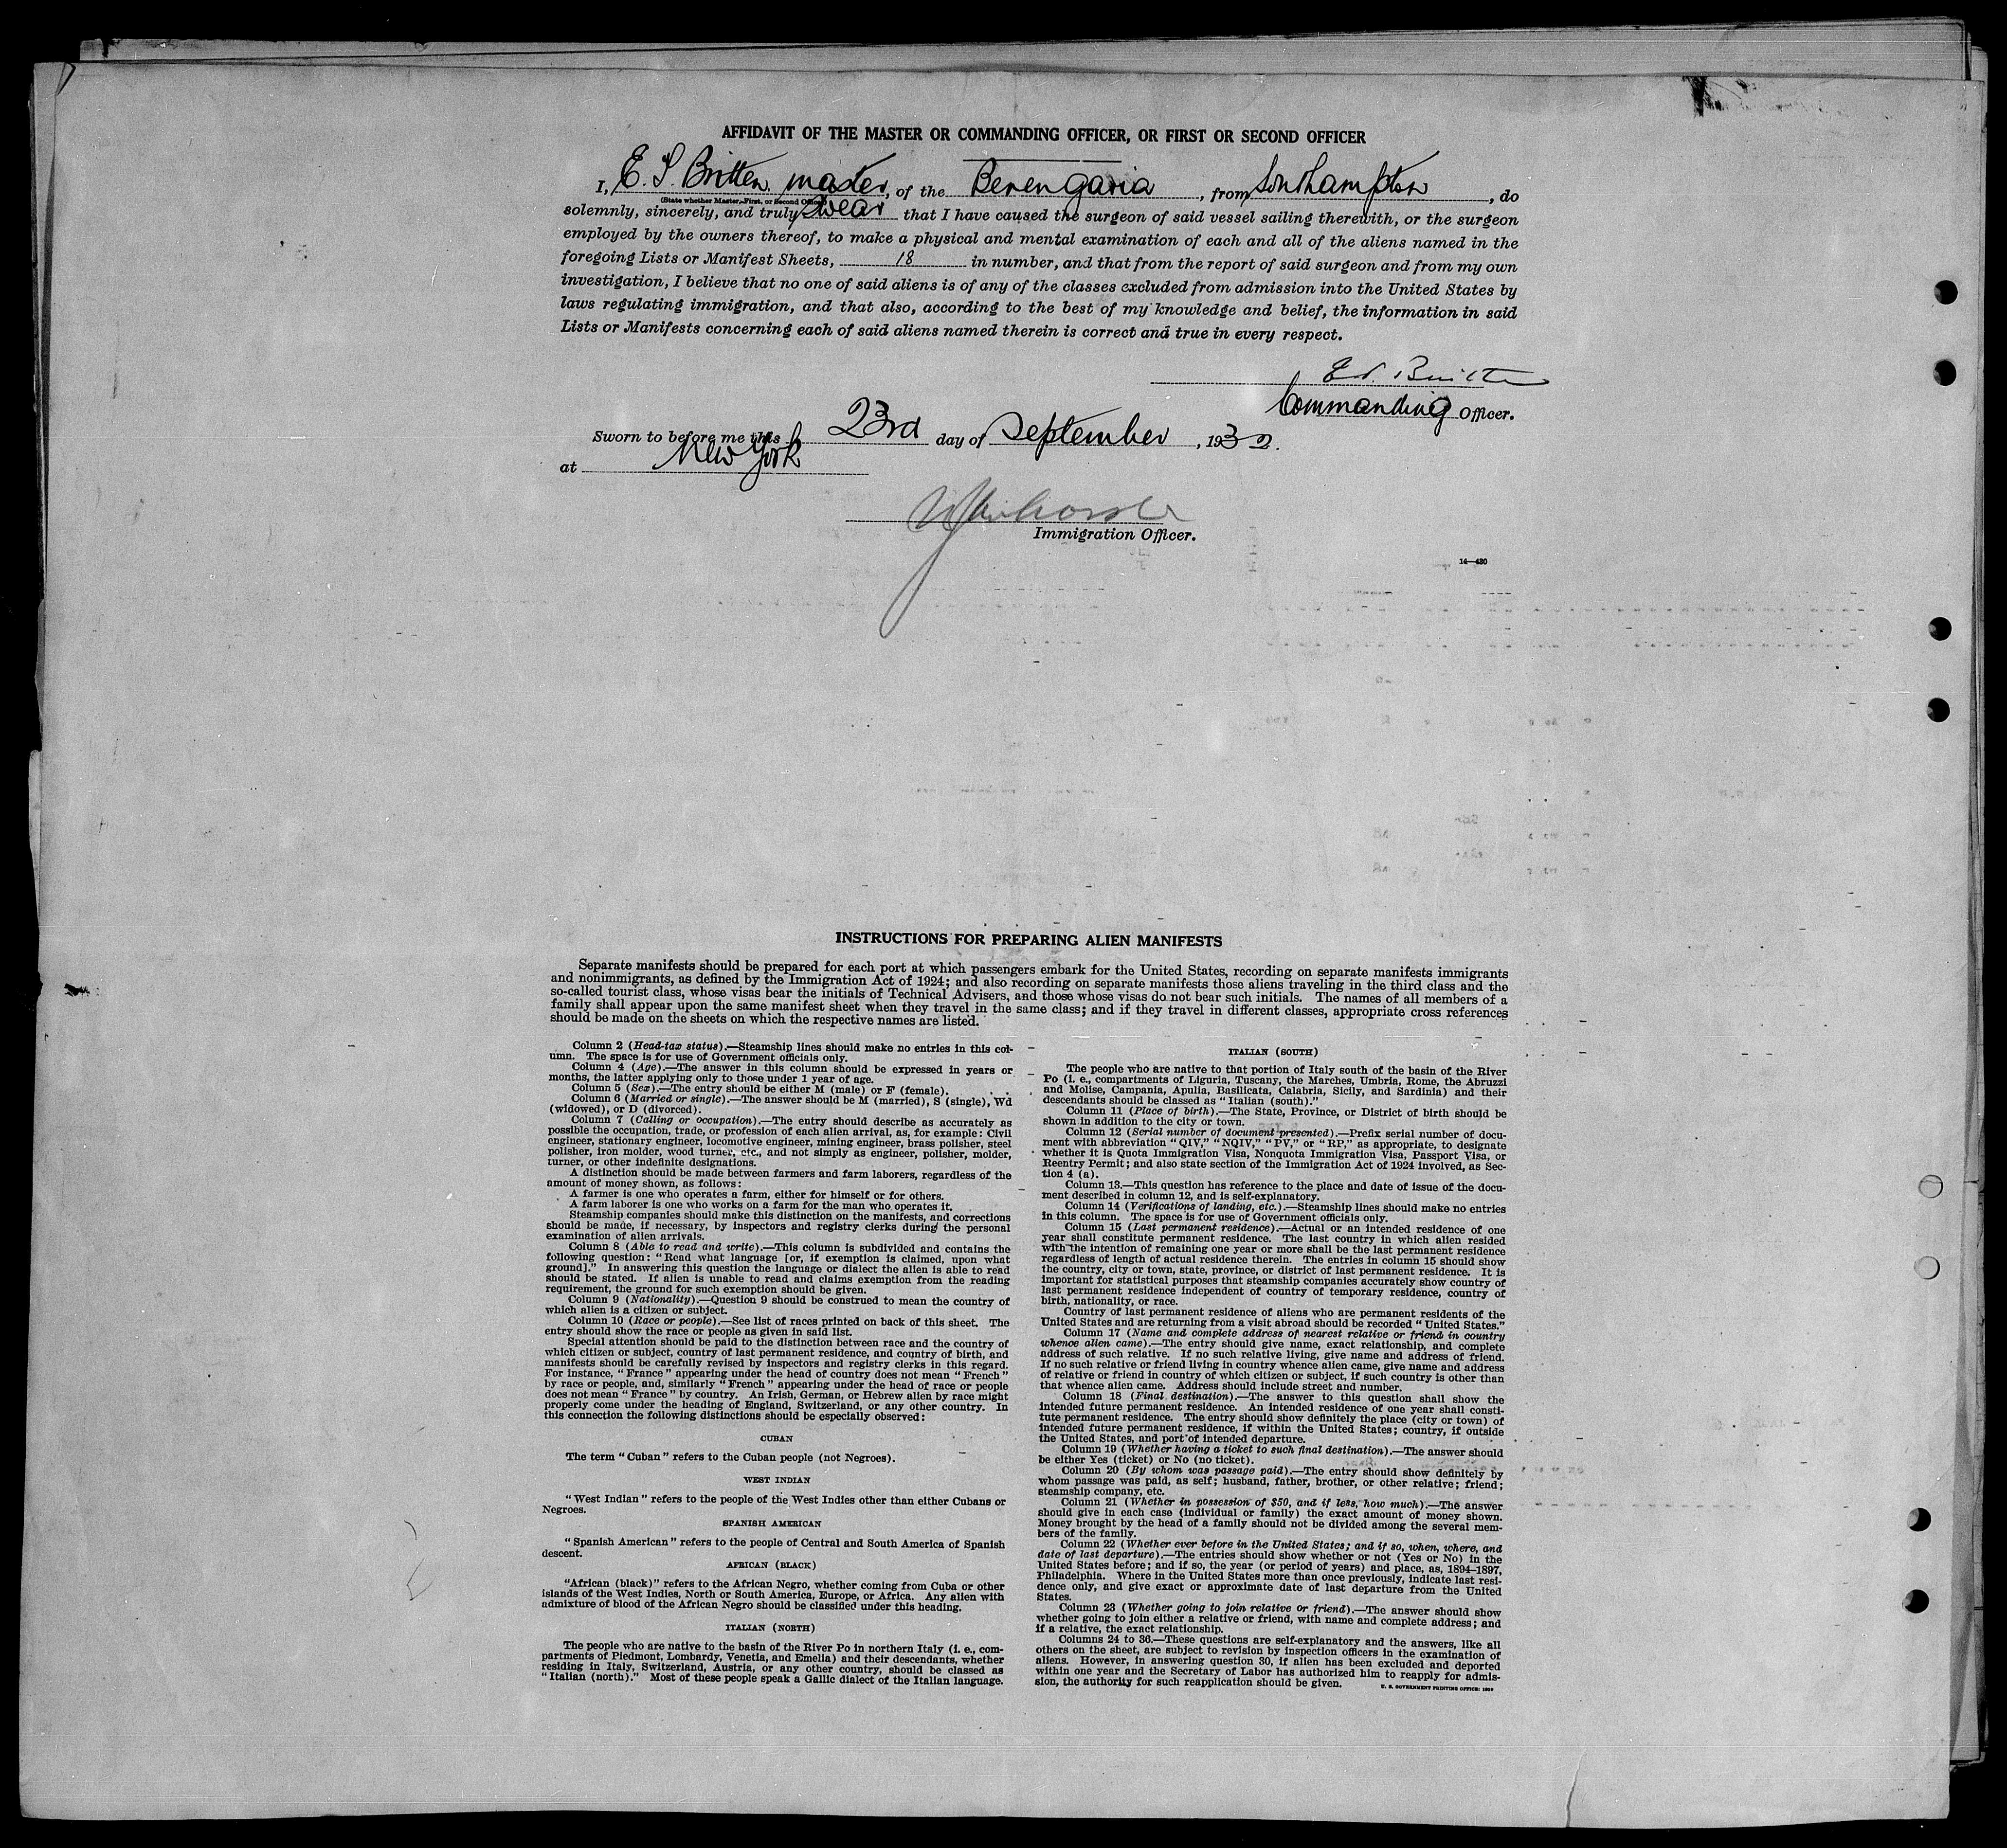 AFFIDAVIT OF THE MASTER OR COMMANDING OFFICER, OR FIRST OR SECOND OFFICER
I, E. S. Britten, master, of the Berengaria, from Southampton, do
(State whether Master, First, or Second Officer)
solemnly, sincerely, and truly swear that I have caused the surgeon of said vessel sailing therewith, or the surgeon
employed by the owners thereof, to make a physical and mental examination of each and all of the aliens named in the
foregoing Lists or Manifest Sheets, 18 in number, and that from the report of said surgeon and from my own
investigation, I believe that no one of said aliens is of any of the classes excluded from admission into the United States by
laws regulating immigration, and that also, according to the best of my knowledge and belief, the information in said
Lists or Manifests concerning each of said aliens named therein is correct and true in every respect.
Commanding Officer.
Sworn to before me this 23rd day of September, 1932.
at New York
Immigration Officer.
14—430
INSTRUCTIONS FOR PREPARING ALIEN MANIFESTS
Separate manifests should be prepared for each port at which passengers embark for the United States, recording on separate manifests immigrants
and nonimmigrants, as defined by the Immigration Act of 1924; and also recording on separate manifests those aliens traveling in the third class and the
so-called tourist class, whose visas bear the initials of Technical Advisers, and those whose visas do not bear such initials. The names of all members of a
family shall appear upon the same manifest sheet when they travel in the same class; and if they travel in different classes, appropriate cross references
should be made on the sheets on which the respective names are listed.
Column 2 (Head-tax status).—Steamship lines should make no entries in this col-
umn. The space is for use of Government officials only.
Column 4 (Age).—The answer in this column should be expressed in years or
months, the latter applying only to those under 1 year of age.
Column 5 (Sex).—The entry should be either M (male) or F (female).
Column 6 (Married or single).—The answer should be M (married), S (single), Wd
(widowed), or D (divorced).
Column 7 (Calling or occupation).—The entry should describe as accurately as
possible the occupation, trade, or profession of each alien arrival, as, for example: Civil
engineer, stationary engineer, locomotive engineer, mining engineer, brass polisher, steel
polisher, iron molder, wood turner, etc., and not simply as engineer, polisher, molder,
turner, or other indefinite designations.
A distinction should be made between farmers and farm laborers, regardless of the
amount of money shown, as follows:
A farmer is one who operates a farm, either for himself or for others.
A farm laborer is one who works on a farm for the man who operates it.
Steamship companies should make this distinction on the manifests, and corrections
should be made, if necessary, by inspectors and registry clerks during the personal
examination of alien arrivals.
Column 8 (Able to read and write).—This column is subdivided and contains the
following question: "Read what language [or, if exemption is claimed, upon what
ground]." In answering this question the language or dialect the alien is able to read
should be stated. If alien is unable to read and claims exemption from the reading
requirement, the ground for such exemption should be given.
Column 9 (Nationality).—Question 9 should be construed to mean the country of
which alien is a citizen or subject.
Column 10 (Race or people).—See list of races printed on back of this sheet. The
entry should show the race or people as given in said list.
Special attention should be paid to the distinction between race and the country of
which citizen or subject, country of last permanent residence, and country of birth, and
manifests should be carefully revised by inspectors and registry clerks in this regard.
For instance, "France" appearing under the head of country does not mean "French"
by race or people, and, similarly "French" appearing under the head of race or people
does not mean "France" by country. An Irish, German, or Hebrew alien by race might
properly come under the heading of England, Switzerland, or any other country. In
this connection the following distinctions should be especially observed:
CUBAN
The term "Cuban" refers to the Cuban people (not Negroes).
WEST INDIAN
"West Indian" refers to the people of the West Indies other than either Cubans or
Negroes.
SPANISH AMERICAN
"Spanish American" refers to the people of Central and South America of Spanish
descent.
AFRICAN (BLACK)
"African (black)" refers to the African Negro, whether coming from Cuba or other
islands of the West Indies, North or South America, Europe, or Africa. Any alien with
admixture of blood of the African Negro should be classified under this heading.
ITALIAN (NORTH)
The people who are native to the basin of the River Po in northern Italy (i. e., com-
partments of Piedmont, Lombardy, Venetia, and Emelia) and their descendants, whether
residing in Italy, Switzerland, Austria, or any other country, should be classed as
"Italian (north)." Most of these people speak a Gallic dialect of the Italian language.
ITALIAN (SOUTH)
The people who are native to that portion of Italy south of the basin of the River
Po (i. e., compartments of Liguria, Tuscany, the Marches, Umbria, Rome, the Abruzzi
and Molise, Campania, Apulia, Basilicata, Calabria, Sicily, and Sardinia) and their
descendants should be classed as "Italian (south)."
Column 11 (Place of birth).—The State, Province, or District of birth should be
shown in addition to the city or town.
Column 12 (Serial number of document presented).—Prefix serial number of docu-
ment with abbreviation "QIV," "NQIV," "PV," or "RP," as appropriate, to designate
whether it is Quota Immigration Visa, Nonquota Immigration Visa, Passport Visa, or
Reentry Permit; and also state section of the Immigration Act of 1924 involved, as Sec-
tion 4 (a).
Column 13.—This question has reference to the place and date of issue of the docu-
ment described in column 12, and is self-explanatory.
Column 14 (Verifications of landing, etc.).—Steamship lines should make no entries
in this column. The space is for use of Government officials only.
Column 15 (Last permanent residence).—Actual or an intended residence of one
year shall constitute permanent residence. The last country in which alien resided
with the intention of remaining one year or more shall be the last permanent residence
regardless of length of actual residence therein. The entries in column 15 should show
the country, city or town, state, province, or district of last permanent residence. It is
important for statistical purposes that steamship companies accurately show country of
last permanent residence independent of country of temporary residence, country of
birth, nationality, or race.
Country of last permanent residence of aliens who are permanent residents of the
United States and are returning from a visit abroad should be recorded "United States."
Column 17 (Name and complete address of nearest relative or friend in country
whence alien came).—The entry should give name, exact relationship, and complete
address of such relative. If no such relative living, give name and address of friend.
If no such relative or friend living in country whence alien came, give name and address
of relative or friend in country of which citizen or subject, if such country is other than
that whence alien came. Address should include street and number.
Column 18 (Final destination).—The answer to this question shall show the
intended future permanent residence. An intended residence of one year shall consti-
tute permanent residence. The entry should show definitely the place (city or town) of
intended future permanent residence, if within the United States; country, if outside
the United States, and port of intended departure.
Column 19 (Whether having a ticket to such final destination).—The answer should
be either Yes (ticket) or No (no ticket).
Column 20 (By whom was passage paid).—The entry should show definitely by
whom passage was paid, as self; husband, father, brother, or other relative; friend;
steamship company, etc.
Column 21 (Whether in possession of $50, and if less, how much).—The answer
should give in each case (individual or family) the exact amount of money shown.
Money brought by the head of a family should not be divided among the several mem-
bers of the family.
Column 22 (Whether ever before in the United States; and if so, when, where, and
date of last departure).—The entries should show whether or not (Yes or No) in the
United States before; and if so, the year (or period of years) and place, as, 1894–1897,
Philadelphia. Where in the United States more than once previously, indicate last resi-
dence only, and give exact or approximate date of last departure from the United
States.
Column 23 (Whether going to join relative or friend).—The answer should show
whether going to join either a relative or friend, with name and complete address; and
if a relative, the exact relationship.
Columns 24 to 36.—These questions are self-explanatory and the answers, like all
others on the sheet, are subject to revision by inspection officers in the examination of
aliens. However, in answering question 30, if alien has been excluded and deported
within one year and the Secretary of Labor has authorized him to reapply for admis-
sion, the authority for such reapplication should be given.
U. S. GOVERNMENT PRINTING OFFICE: